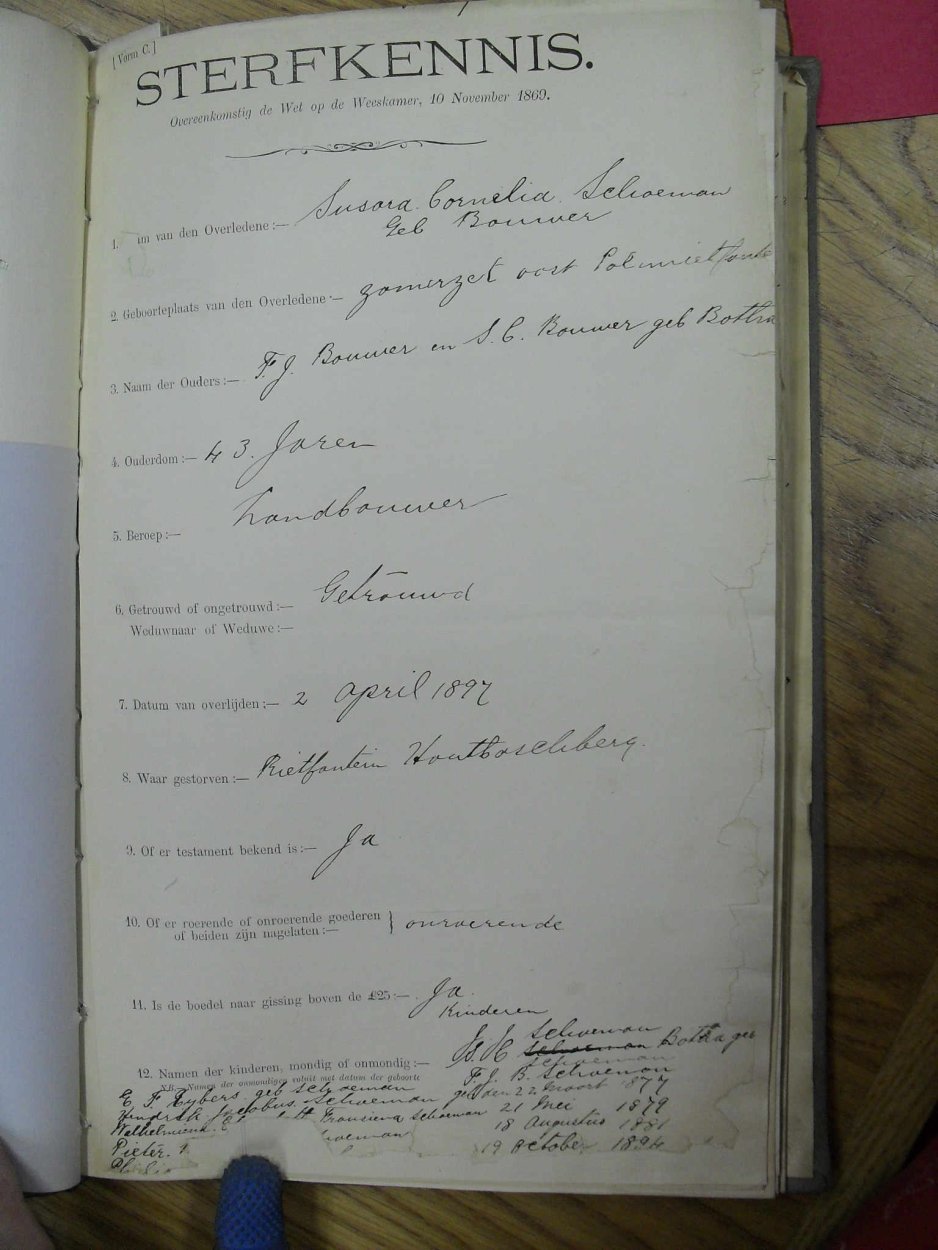 [Vorm C.]
STERFKENNIS.
Overeenkomstig de Wet op de Weeskamer, 10 November 1869.
1. m van den Overledene:— Susara Cornelia Schoeman
Geb Bouwer
2. Geboorteplaats van den Overledene:— zomerzet oost
3. Naam der Ouders:— F. J. Bouwer en S. C. Bouwer geb Botha
4. Ouderdom:— 43. Jaren
5. Beroep:— Landbouwer
6. Getrouwd of ongetrouwd:— Getrouwd
Weduwnaar of Weduwe:—
7. Datum van overlijden:— 2 April 1897
8. Waar gestorven:— Rietfontein Houtboschberg.
9. Of er testament bekend is:— Ja
10. Of er roerende of onroerende goederen } onroerende
of beiden zijn nagelaten:—
11. Is de boedel naar gissing boven de £25:— Ja
Kinderen
Schoeman
12. Namen der kinderen, mondig of onmondig:— Schoeman Botha geb
Schoeman
N.B.—Namen der onmondigen voluit met datum der geboorte F. J. B. Schoeman
E. F. Eybers geb Schoeman
Hendrik Jacobus Schoeman geb den 22 Maart 1877
Wilhelmiena Fransiena Schoeman 21 Mei 1879
Pieter 18 Augustus 1881
19 October 1894